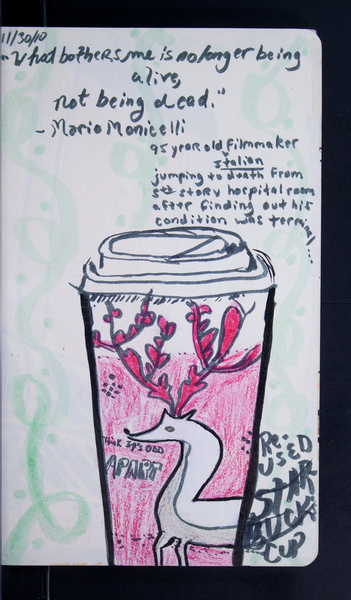 11/30/10
"What bothers me is no longer being
alive,
not being dead."
- Mario Monicelli
95 year old filmmaker
Italian
jumping to death from
5th story hospital room
after finding out his
condition was terminal...
APART
Re-
USED
STAR
BUCKS
CUP